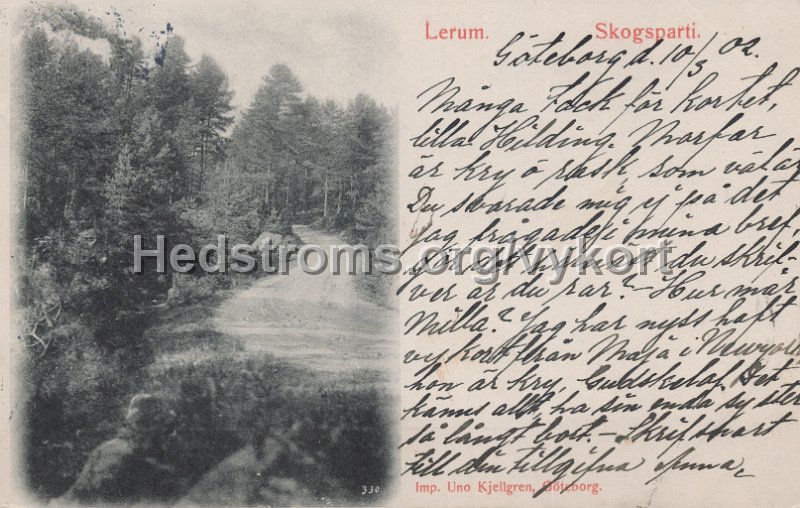 Lerum. Skogsparti.
Göteborg d. 10/3 02.
Många Tack för kortet,
lilla Hilding. Morfar
är kry o rask som välär
Du svarade mig ej på det
jag frågade i mina bref,
du skrif-
ver är du rar? - Hur mår
Milla? Jag har nyss haft
vykort från Maja i Newyork
hon är kry, Gudskelof. Det
känns allt, ha sin enda syster
så långt bort. - Skrif snart
till din tillgifna Anna
Hedstroms.org/vykort
330
Imp. Uno Kjellgren, Göteborg.